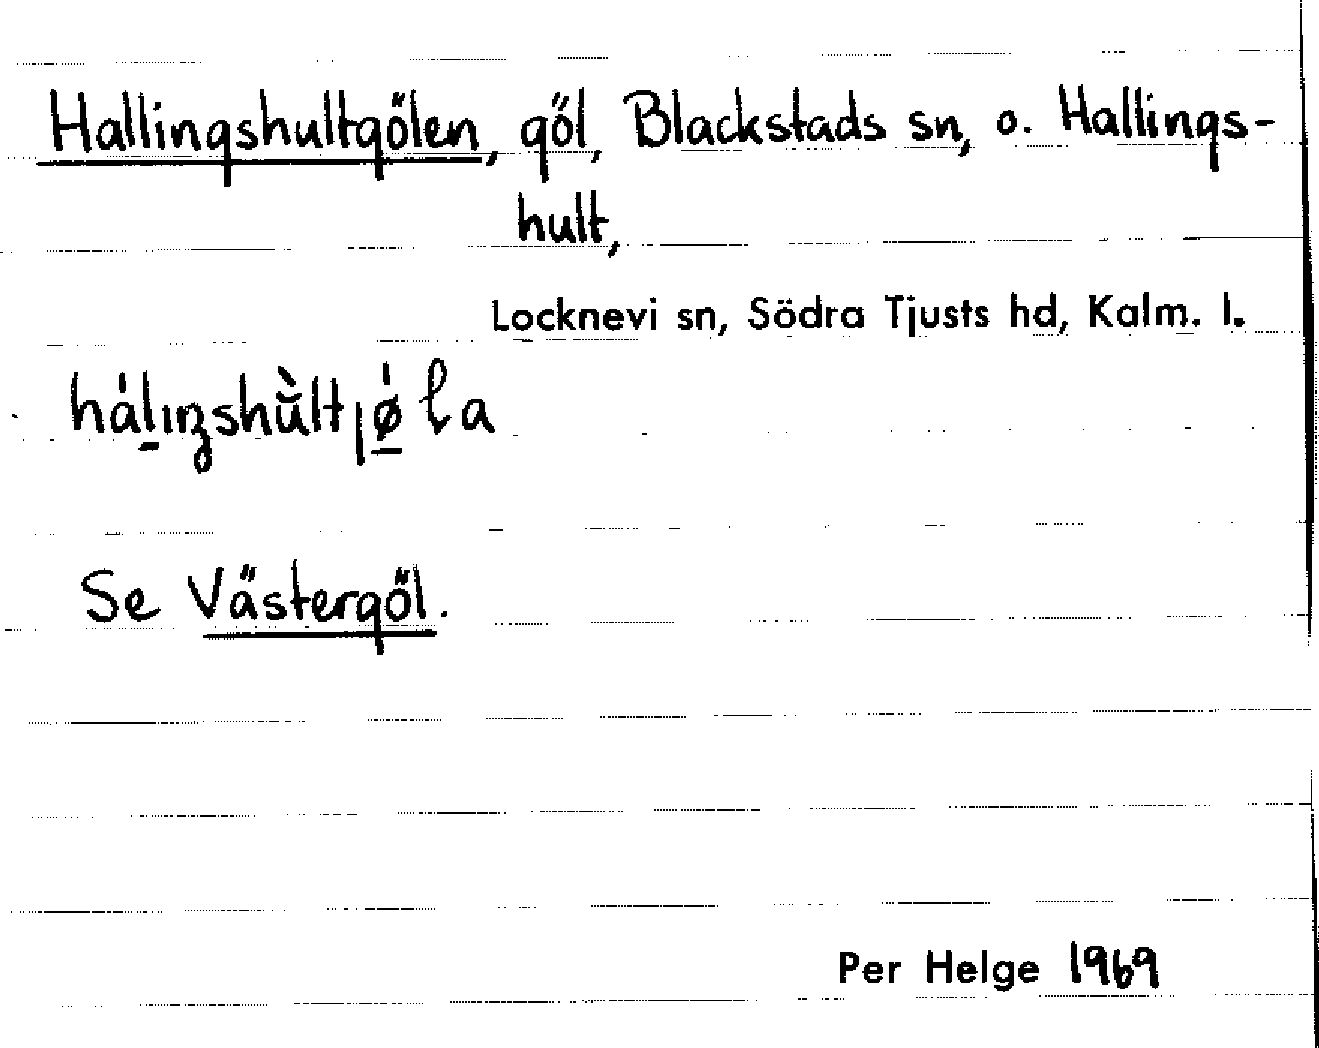 Hallingshultgölen, göl, Blackstads sn, o. Hallings-
hult,
Locknevi sn, Södra Tjusts hd, Kalm. l.
Se Västergöl.
Per Helge 1969